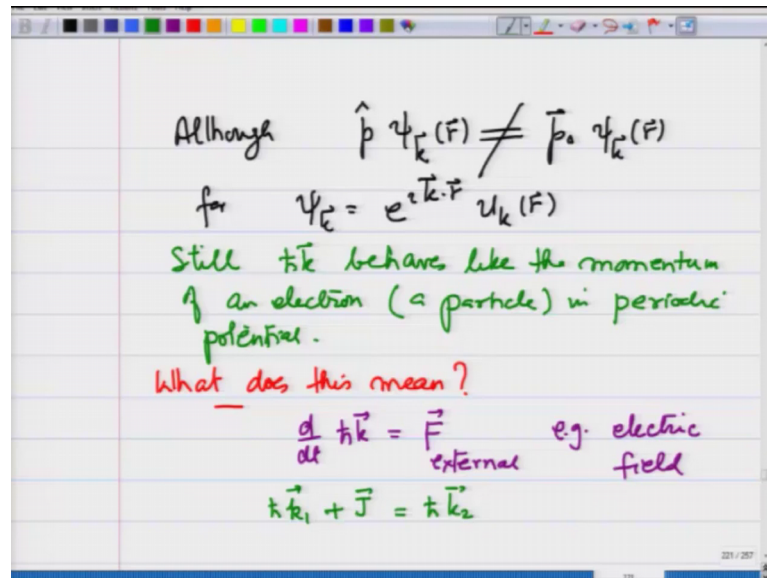 Although p̂ ψ_k⃗ (r⃗) ≠ p⃗₀ ψ_k⃗ (r⃗)
for ψ_k⃗ = e^{i k⃗·r⃗} u_k (r⃗)
Still ħk⃗ behaves like the momentum
of an electron (a particle) in periodic
potential.
What does this mean?
d/dt ħk⃗ = F⃗ external e.g. electric
field
ħk⃗₁ + J⃗ = ħk⃗₂
221 / 257